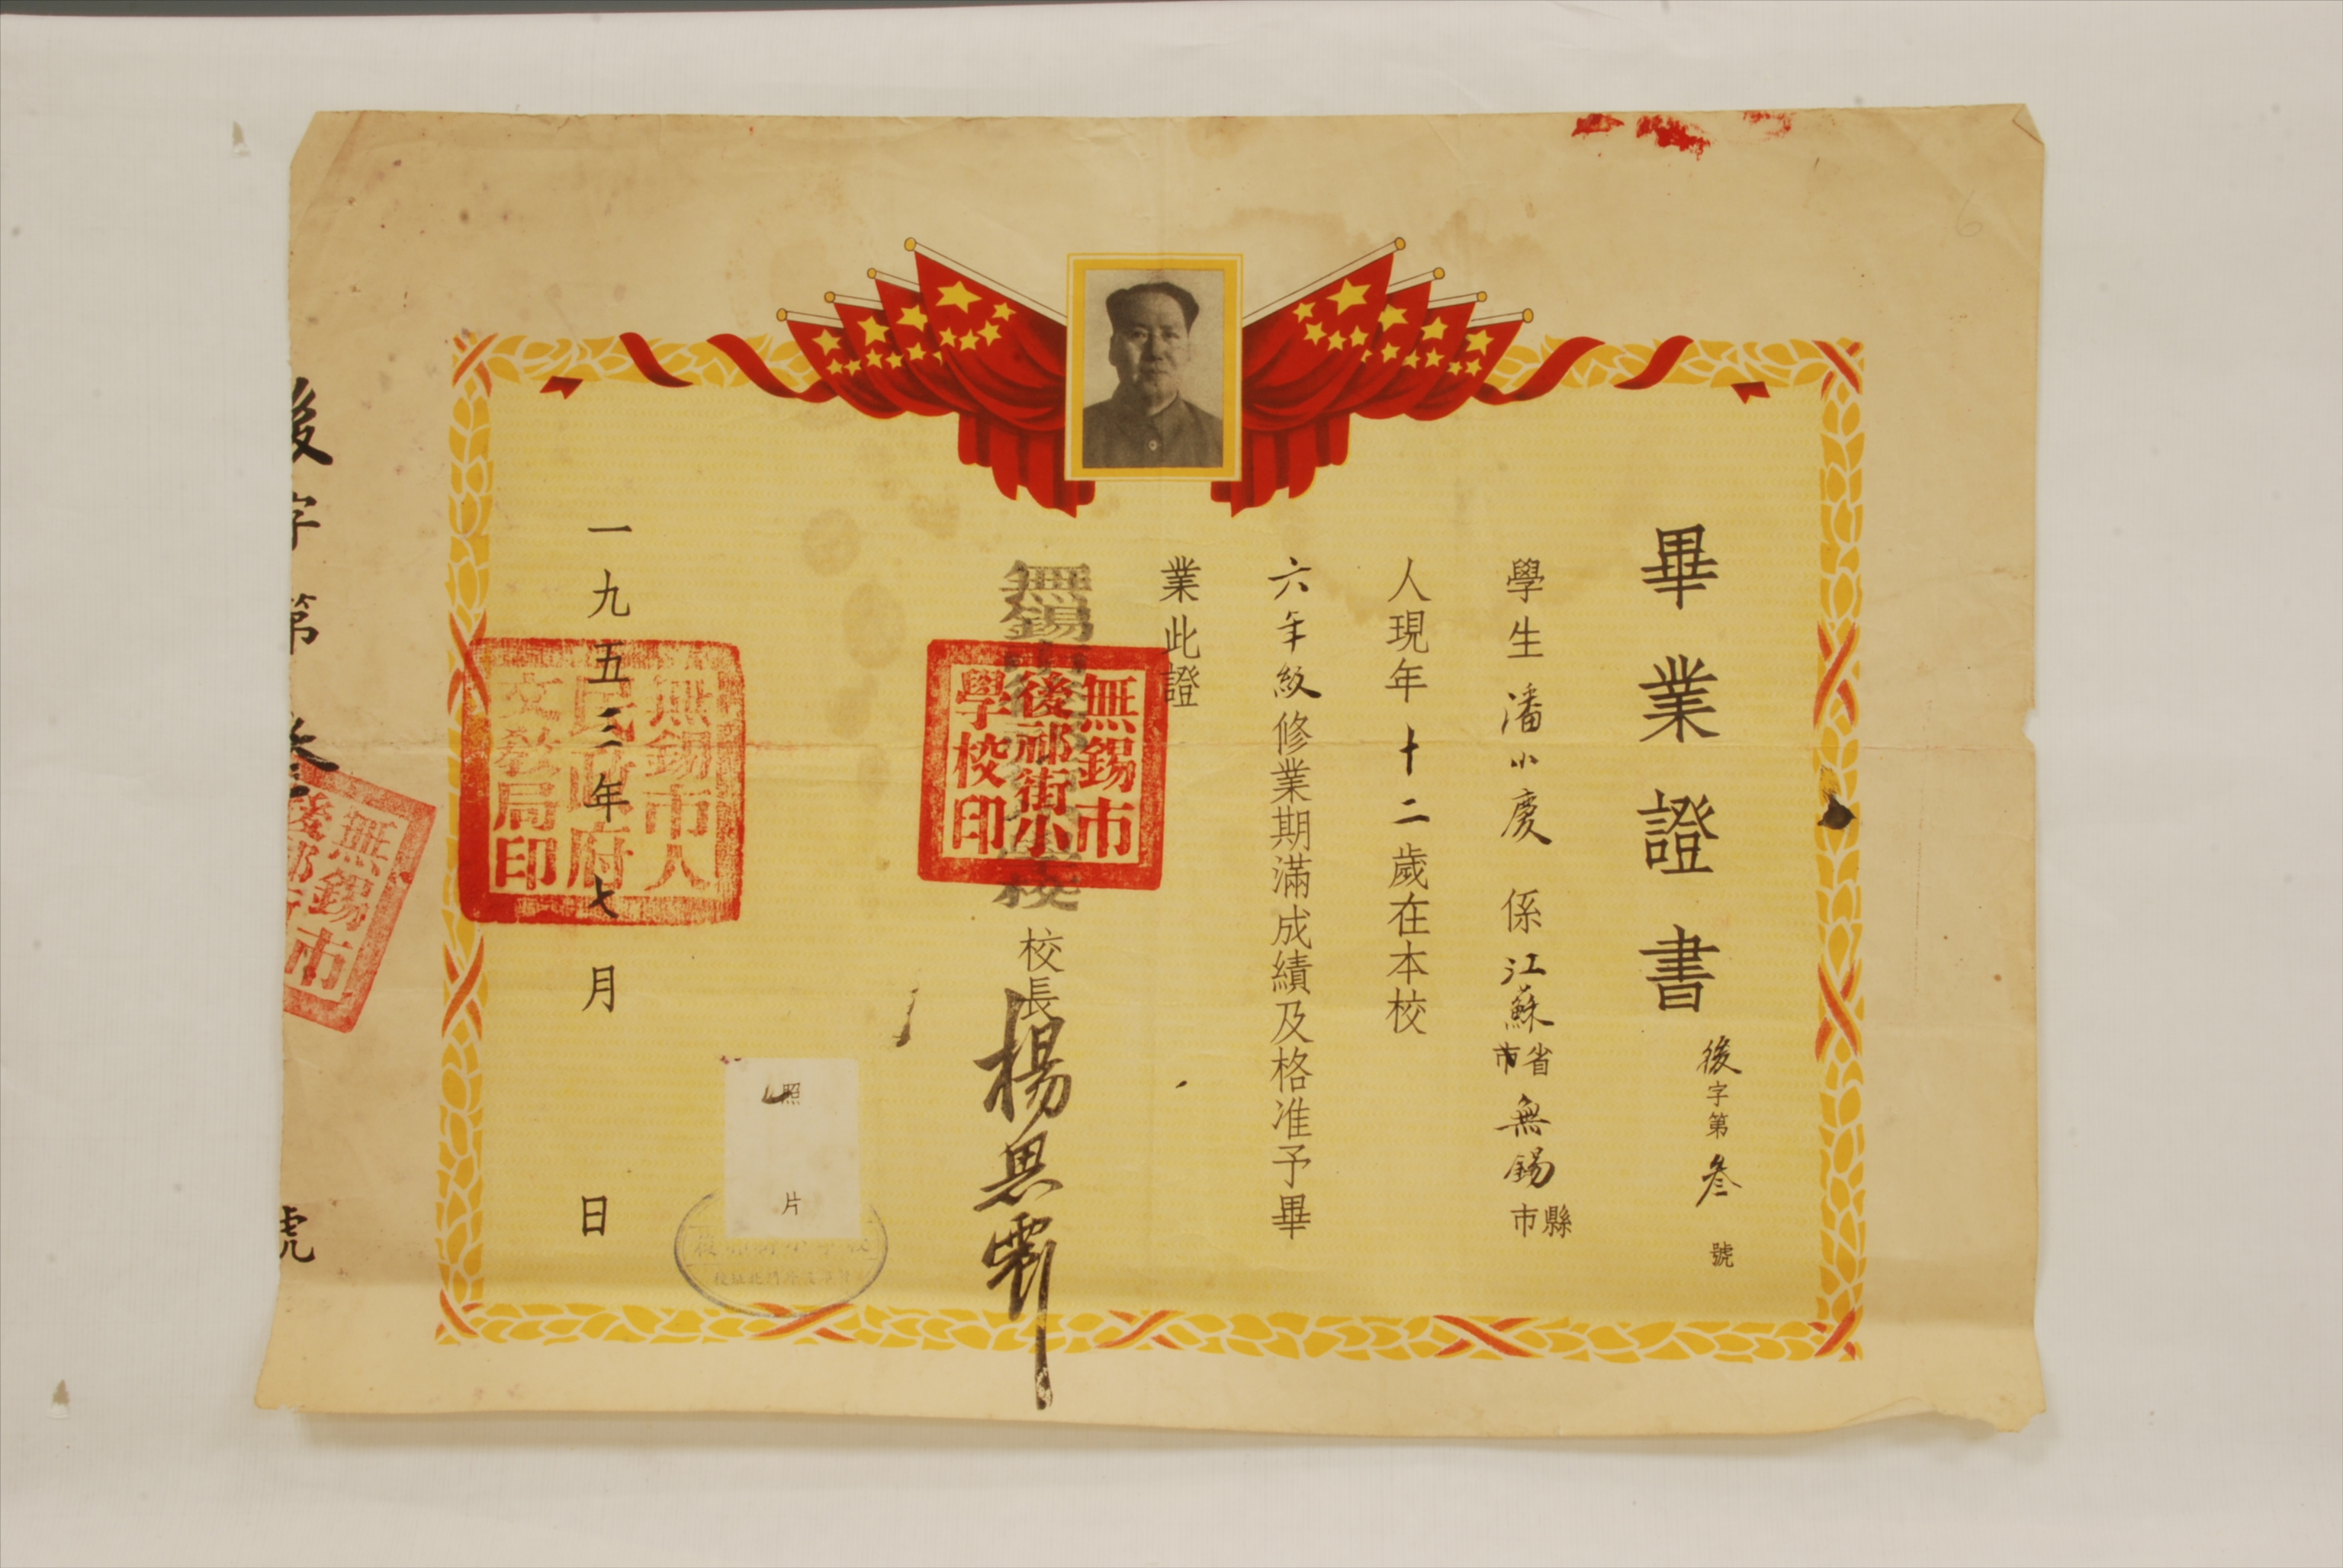 畢業證書
後字第叁號
學生潘小慶係江蘇省市無錫縣市
人現年十二歲在本校
六年級修業期滿成績及格准予畢
業此證
無錫市後祁街小學校
校長楊思
無錫市後祁街小學校印
照片
一九五三年七月日
無錫市人民政府文教局印
後字第叁號
無錫市後祁街
6